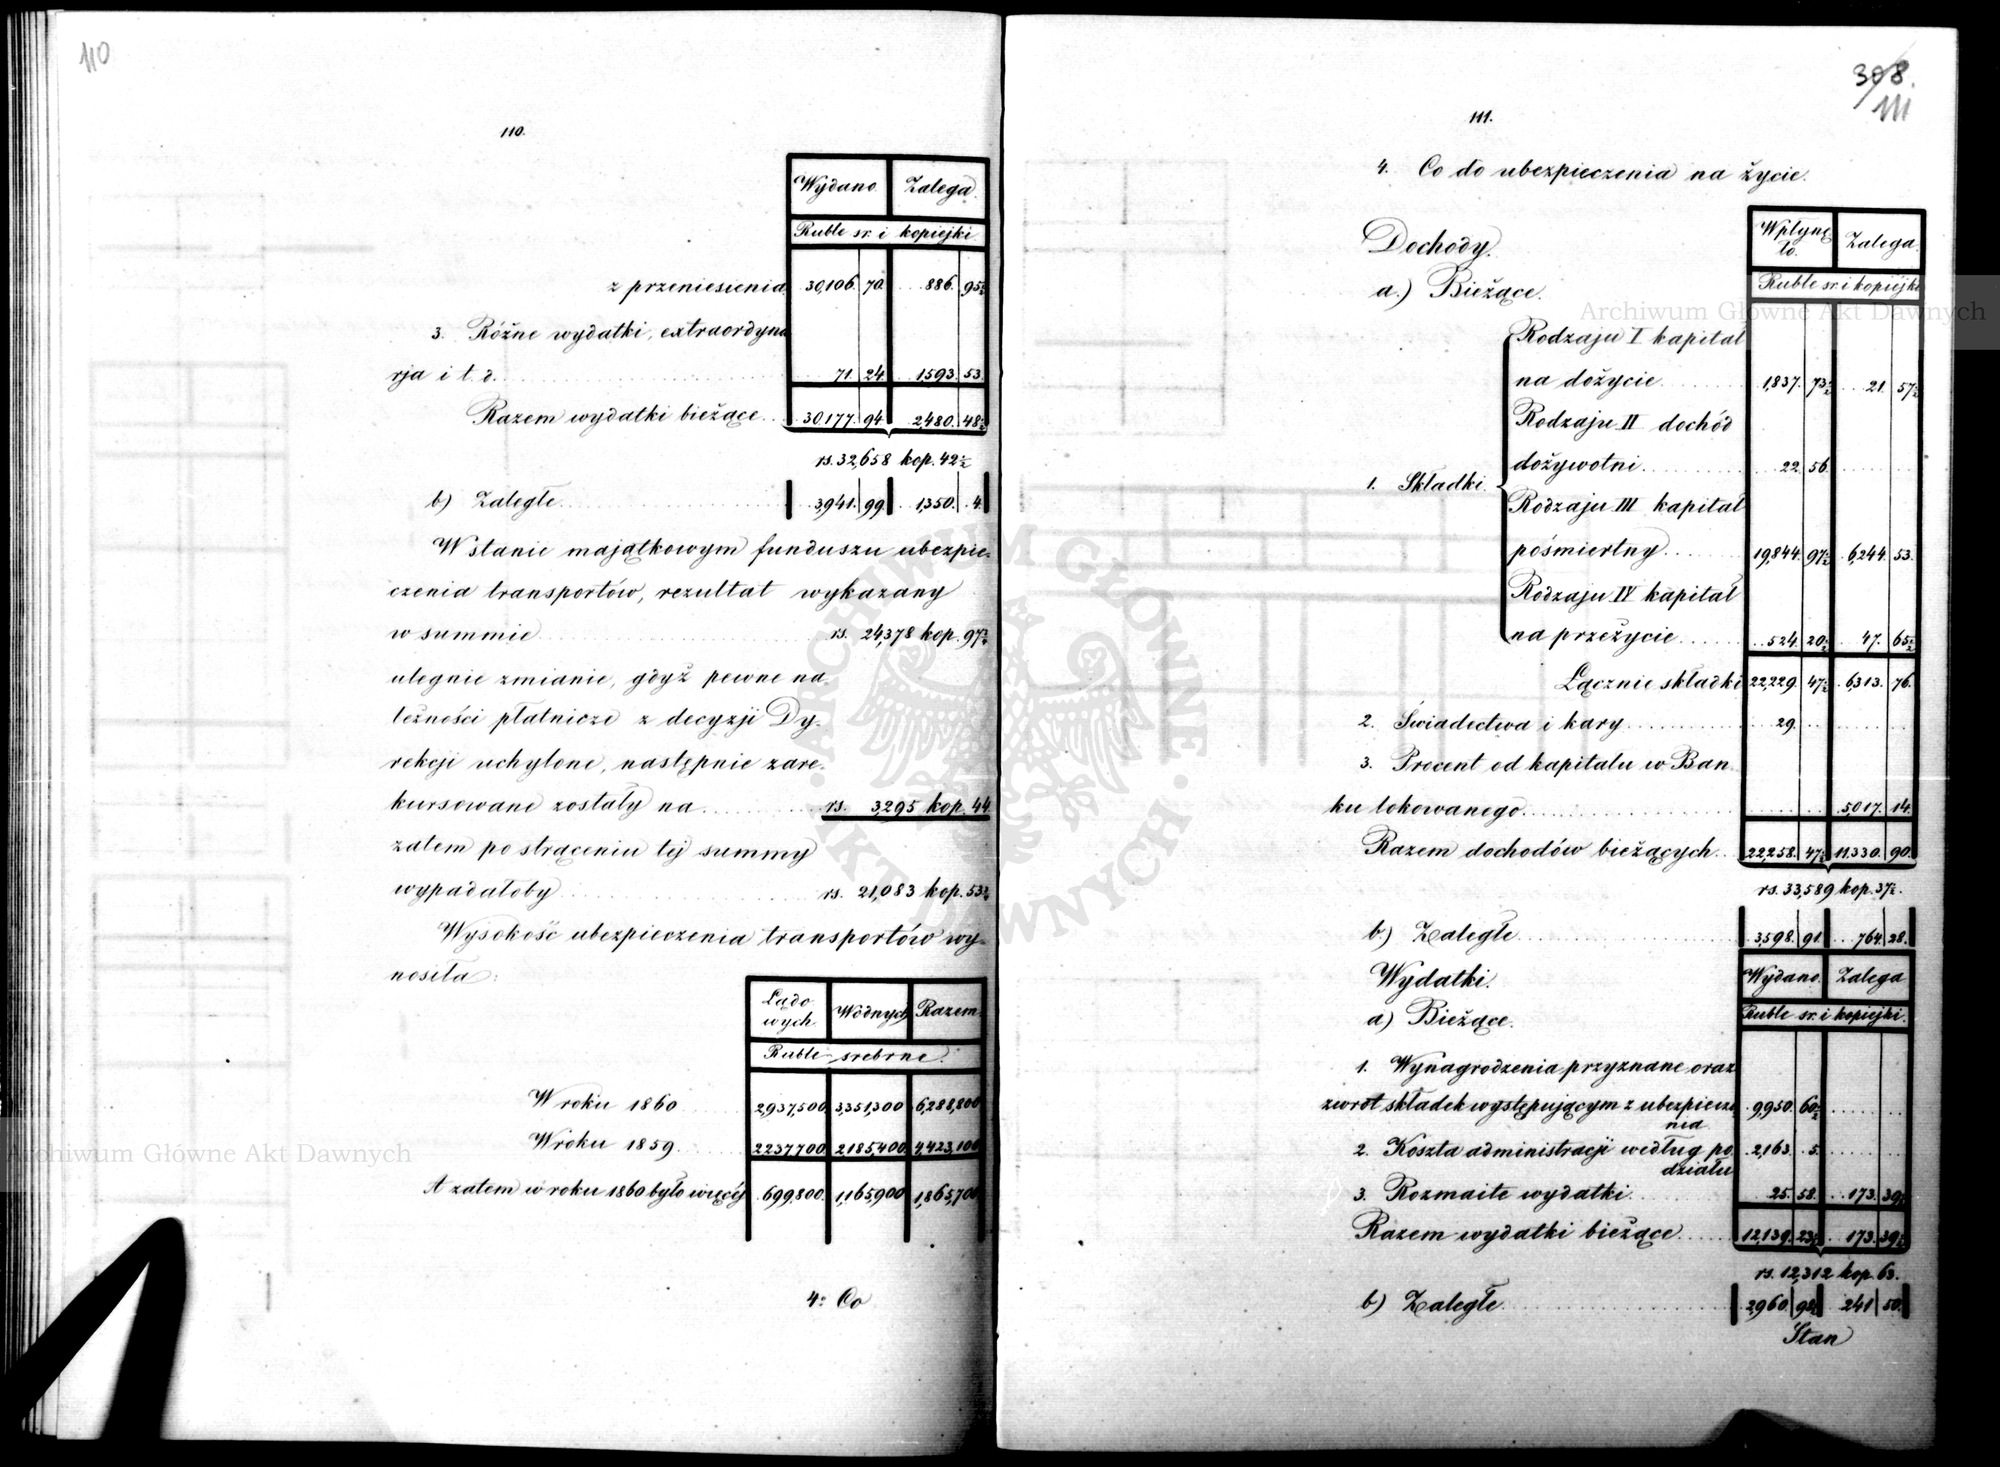 110
110.
Wydano Zalega
Ruble sr. i kopiejki
z przeniesienia 30,106. 70. 886. 95½
3. Różne wydatki, extraordyna
rja i t. d. 71. 24 1593. 53.
Razem wydatki bieżące 30177. 94 2,480. 48½
rs. 32,658 kop. 42½
b) Zaległe 3,941. 99. 1,350. 4.
W stanie majątkowym funduszu ubezpie-
czenia transportów, rezultat wykazany
w summie rs. 24,378 kop. 97½
ulegnie zmianie, gdyż pewne na-
leżności płatnicze z decyzji Dy-
rekcji uchylone, następnie zare-
kursowane zostały na rs. 3,295 kop. 44
zatem po strąceniu tej summy
wypadałoby rs. 21,083 kop. 53½
Wysokość ubezpieczenia transportów wy-
nosiła:
Lądo Wodnych Razem
wych
Ruble srebrne.
W roku 1860 2,937,500 3,351,300 6,288,800
W roku 1859 2237,700 2185,400 4,423,100
A zatem w roku 1860 było więcéj 699,800. 1,165,900 1,865,700
4: Co
308.
111
111.
4. Co do ubezpieczenia na życie.
Dochody.
Wpłynę Zalega.
ło.
Ruble sr. i kopiejki
a.) Bieżące.
Rodzaju I kapitał
na dożycie 1,837. 73½ 21. 57½
Rodzaju II dochód
dożywotni 22. 56.
1. Składki.
Rodzaju III kapitał
pośmiertny 19,844. 97½ 6,244. 53.
Rodzaju IV kapitał
na przeżycie 524. 20½ 47. 65½
Łącznie składki 22,229. 47½ 6,313. 76.
2. Świadectwa i kary 29.
3. Procent od kapitału w Ban
ku lokowanego 5,017. 14.
Razem dochodów bieżących 22,258. 47½ 11,330. 90.
rs. 33,589 kop. 37½.
b.) Zaległe 3,598. 91. 764. 28.
Wydatki. Wydano. Zalega
a) Bieżące. Ruble sr. i kopiejki.
1. Wynagrodzenia przyznane oraz
zwrot składek występującym z ubezpiecze 9,950. 60½
nia
2. Koszta administracji według po 2,163. 5.
działu
3. Rozmaite wydatki 25. 58. 173. 39½
Razem wydatki bieżące 12,139. 23½ 173. 39½
rs. 12,312 kop. 63.
b) Zaległe 2,960. 98½ 241 50.
Stan
Archiwum Główne Akt Dawnych
Archiwum Główne Akt Dawnych
ARCHIWUM GŁÓWNE AKT DAWNYCH